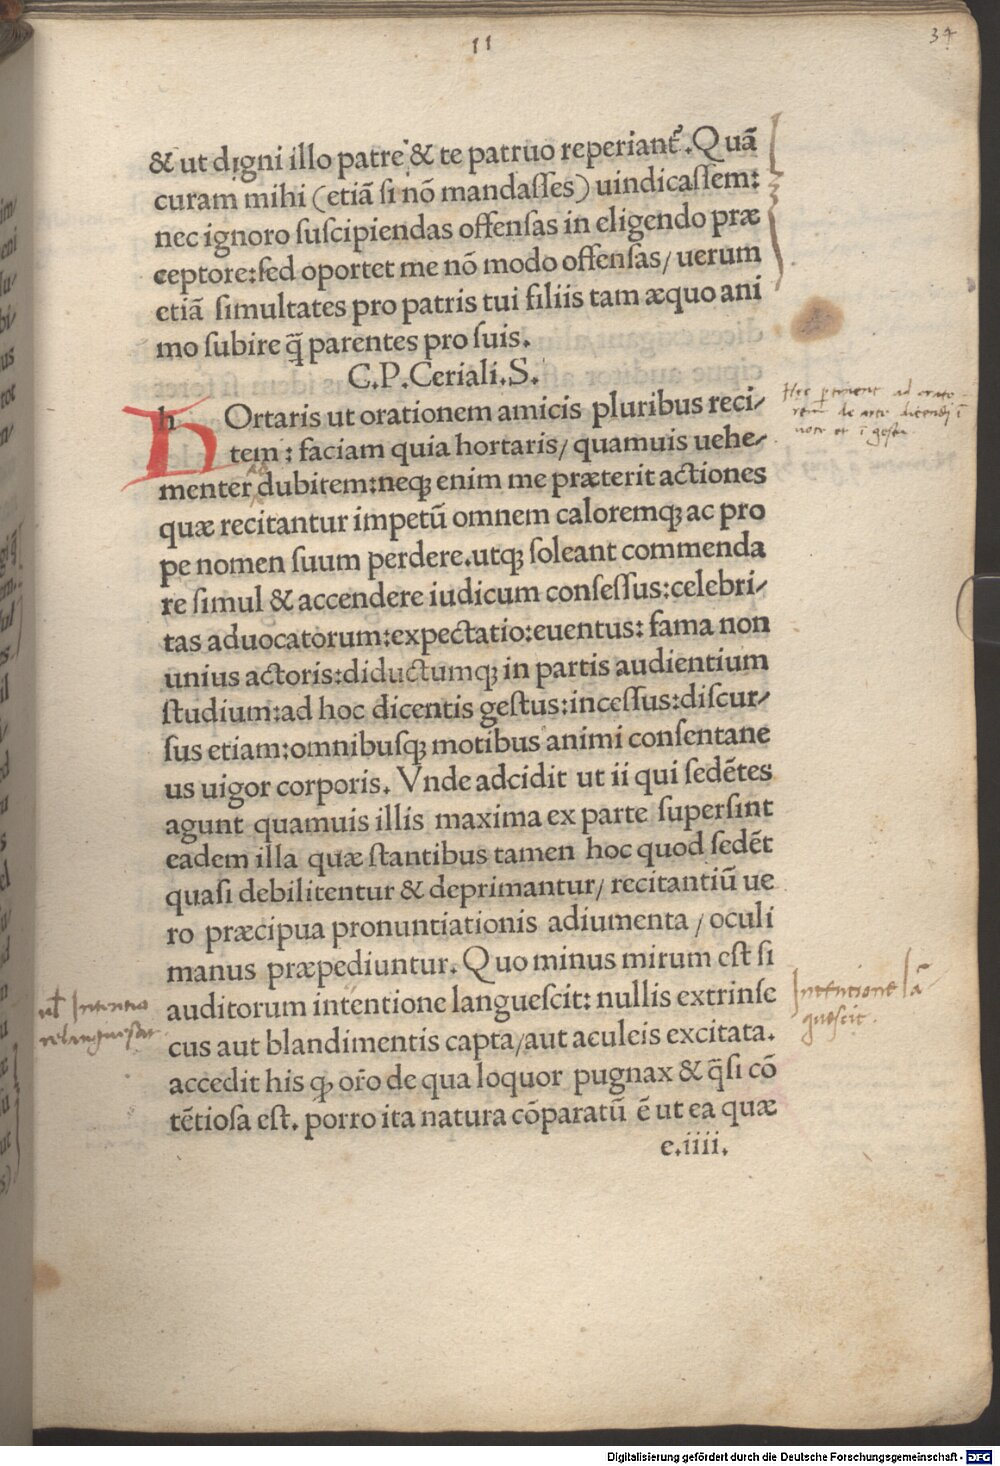 11
34
& ut digni illo patre & te patruo reperiant᷑. Quã
curam mihi (etiã si nõ mandasses) uindicassem:
nec ignoro suscipiendas offensas in eligendo præ
ceptore: sed oportet me nõ modo offensas/ uerum
etiã simultates pro patris tui filiis tam æquo ani
mo subire q̃ parentes pro suis.
C.P.Ceriali.S.
hOrtaris ut orationem amicis pluribus reci/
tem: faciam quia hortaris/ quamuis uehe/
menter dubitem: neqꝫ enim me præterit actiones
quæ recitantur impetũ omnem caloremqꝫ ac pro
pe nomen suum perdere. utqꝫ soleant commenda
re simul & accendere iudicum consessus: celebri/
tas aduocatorum: expectatio: euentus: fama non
unius actoris: diductumqꝫ in partis audientium
studium: ad hoc dicentis gestus: incessus: discur/
sus etiam: omnibusqꝫ motibus animi consentane
us uigor corporis. Vnde adcidit ut ii qui sedẽtes
agunt quamuis illis maxima ex parte supersint
eadem illa quæ stantibus tamen hoc quod sedẽt
quasi debilitentur & deprimantur/ recitantiũ ue
ro præcipua pronuntiationis adiumenta / oculi
manus præpediuntur. Quo minus mirum est si
auditorum intentione languescit: nullis extrinse
cus aut blandimentis capta/aut aculeis excitata.
accedit his qꝫ or̃o de qua loquor pugnax & q̃si cõ
tẽtiosa est. porro ita natura cõparatũ ẽ ut ea quæ
e.iiii.
Hec pertinent ad orato
Intentione lã
guescit.
Digitalisierung gefördert durch die Deutsche Forschungsgemeinschaft - DFG